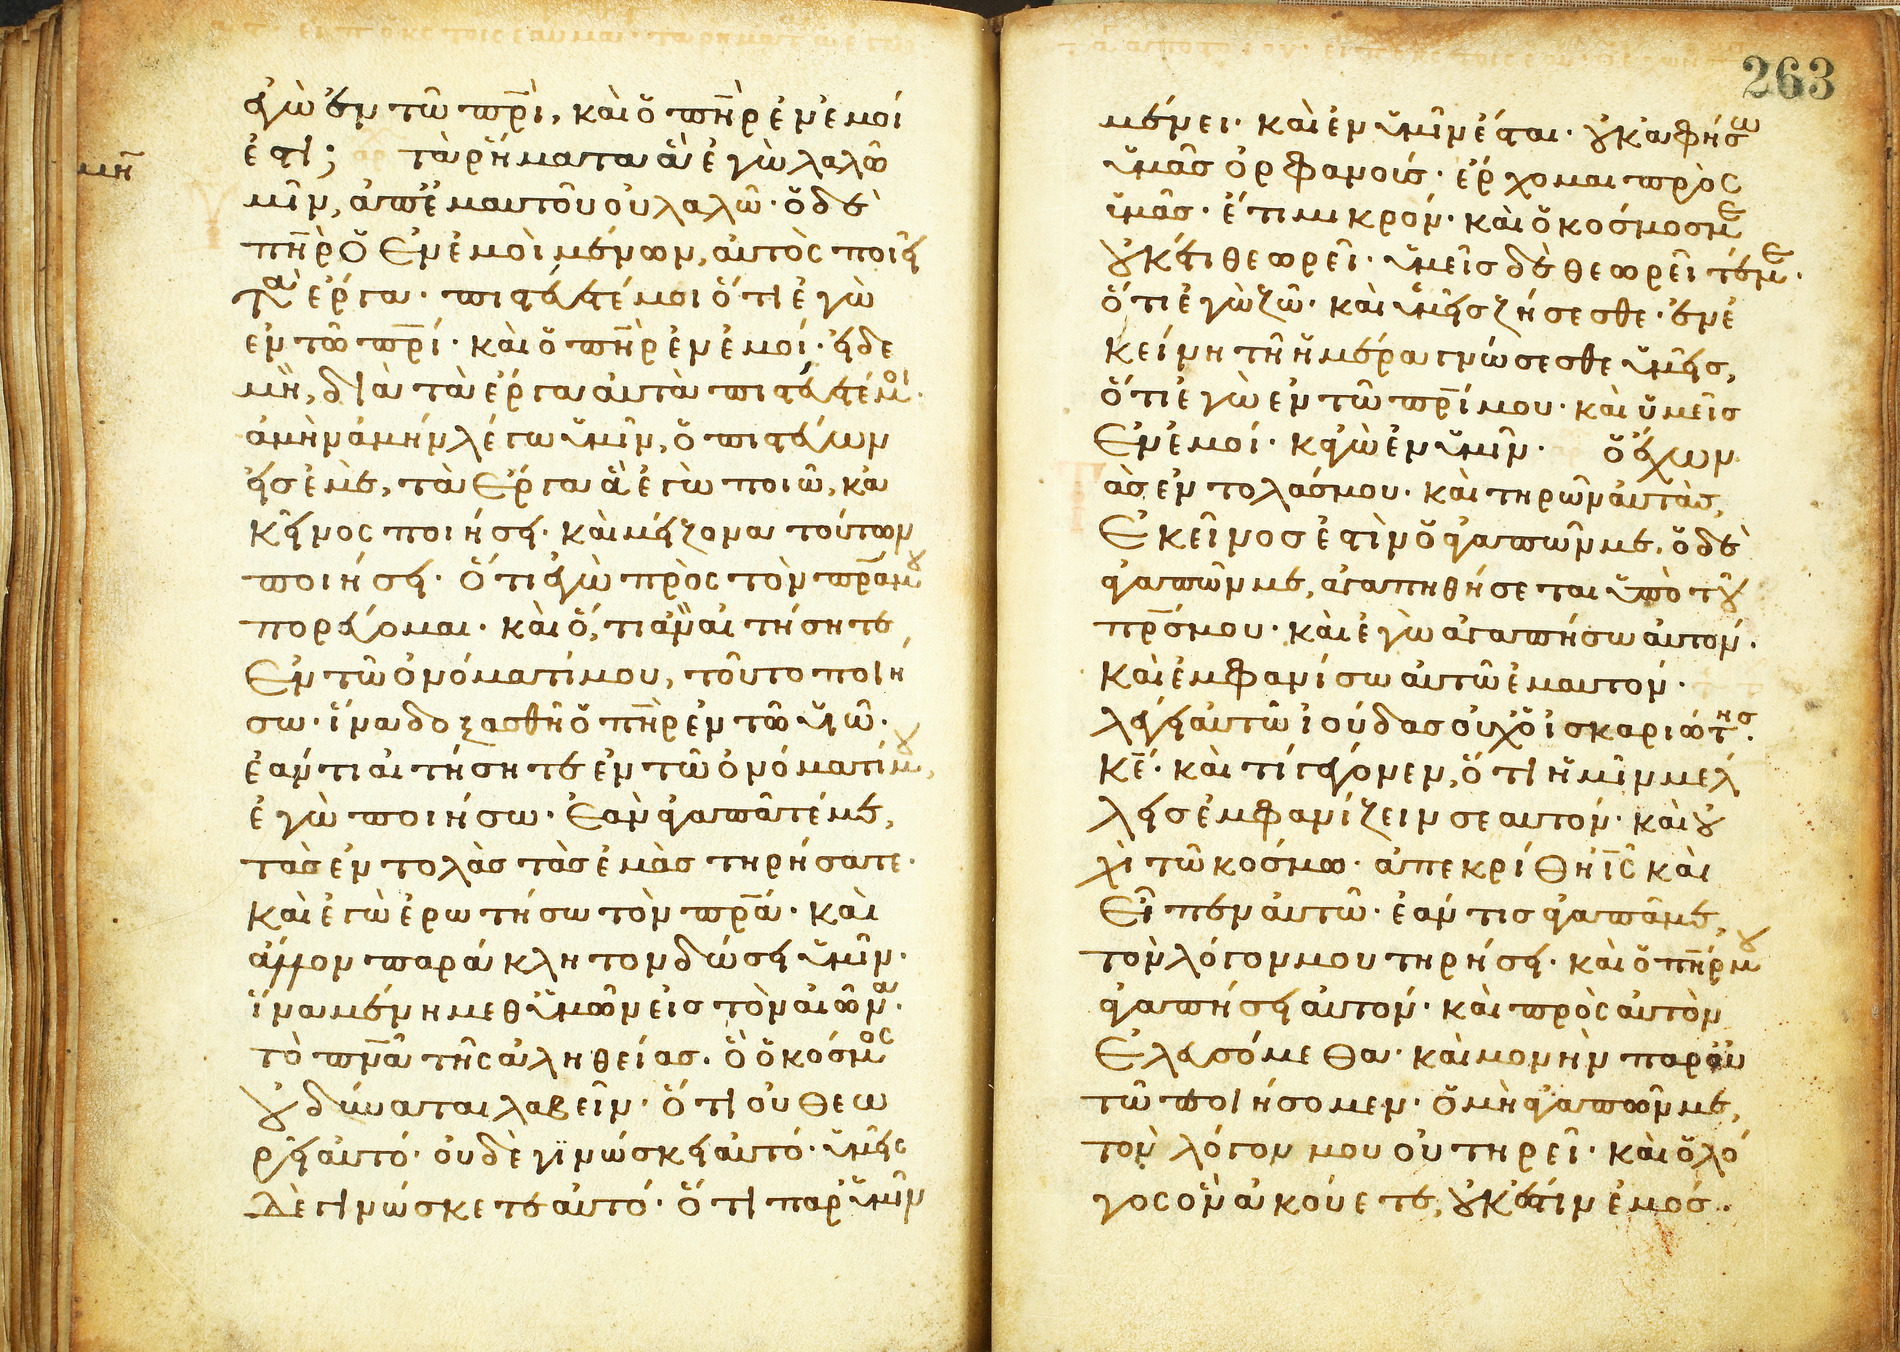 γὼ ἐν τῶ πρὶ, καὶ ὁ πὴρ ἐν ἐμοί
ἐστι; τὰ ῥήματα ἃ ἐγὼ λαλῶ
μῖν, ἀπ' ἐμαυτοῦ οὐ λαλῶ· ὁ δὲ
πὴρ ὁ ἐν ἐμοὶ μένων, αὐτὸς ποιεῖ
τὰ ἔργα· πιστεύετέ μοι ὅτι ἐγὼ
ἐν τῶ πρί· καὶ ὁ πὴρ ἐν ἐμοί· εἰ δὲ
μὴ, διὰ τὰ ἔργα αὐτὰ πιστεύετέ μοι·
ἀμὴν ἀμὴν λέγω ὑμῖν, ὁ πιστεύων
εἰς ἐμὲ, τὰ ἔργα ἃ ἐγὼ ποιῶ, κἀ
κεῖνος ποιήσει· καὶ μείζονα τούτων
ποιήσει· ὅτι ἐγὼ πρὸς τὸν πρα μου
πορεύομαι· καὶ ὅ, τι ἂν αἰτήσητε
ἐν τῶ ὀνόματί μου, τοῦτο ποιή
σω· ἵνα δοξασθῆ ὁ πὴρ ἐν τῶ υἱῶ·
ἐάν τι αἰτήσητε ἐν τῶ ὀνόματί μου,
ἐγὼ ποιήσω· Ἐὰν ἀγαπᾶτέ με,
τὰς ἐντολὰς τὰς ἐμὰς τηρήσατε·
καὶ ἐγὼ ἐρωτήσω τὸν πρά· καὶ
ἄλλον παράκλητον δώσει ὑμῖν·
ἵνα μένη μεθ' ὑμῶν εἰς τὸν αἰῶνα·
τὸ πνα τῆς ἀληθείας· ὃ ὁ κόσμος
οὐ δύναται λαβεῖν· ὅτι οὐ θεω
ρεῖ αὐτό· οὐδὲ γϊνώσκει αὐτό· ὑμεῖς
δὲ γινώσκετε αὐτό· ὅτι παρ' ὑμῖν
μη
263
μένει· καὶ ἐν ὑμῖν ἔσται· οὐκ ἀφήσω
ὑμᾶς ὀρφανούς· ἔρχομαι πρὸς
ὑμᾶς· ἔτι μικρόν· καὶ ὁ κόσμος με
οὐκέτι θεωρεῖ· ὑμεῖς δὲ θεωρεῖτέ με·
ὅτι ἐγὼ ζῶ· καὶ ὑμεῖς ζήσεσθε· ἐν ἐ
κείνη τῆ ἡμέρα γνώσεσθε ὑμεῖς,
ὅτι ἐγὼ ἐν τῶ πρί μου· καὶ ὑμεῖς
ἐν ἐμοί· κἀγὼ ἐν ὑμῖν· ὁ ἔχων
ὰς ἐντολάς μου· καὶ τηρῶν αὐτὰς,
ἐκεῖνος ἐστὶν ὁ ἀγαπῶν με· ὁ δὲ
ἀγαπῶν με, ἀγαπηθήσεται ὑπὸ τοῦ
πρς μου· καὶ ἐγὼ ἀγαπήσω αὐτόν·
καὶ ἐμφανίσω αὐτῶ ἐμαυτόν·
λέγει αὐτῶ ἰούδας οὐχ ὁ ἰσκαριώτης·
κέ· καὶ τί γέγονεν, ὅτι ἡμῖν μέλ
λεις ἐμφανίζειν σεαυτόν· καὶ οὐ
χὶ τῶ κόσμω· ἀπεκρίθη ἰς καὶ
εἶπεν αὐτῶ· ἐάν τις ἀγαπᾶ με,
τὸν λόγον μου τηρήσει· καὶ ὁ πήρ μου
ἀγαπήσει αὐτόν· καὶ πρὸς αὐτὸν
ἐλευσόμεθα· καὶ μονὴν παρ' αὐ
τῶ ποιήσομεν· ὁ μὴ ἀγαπῶν με,
τὸν λόγον μου οὐ τηρεῖ· καὶ ὁ λό
γος ὃν ἀκούετε, οὐκ ἔστιν ἐμός·